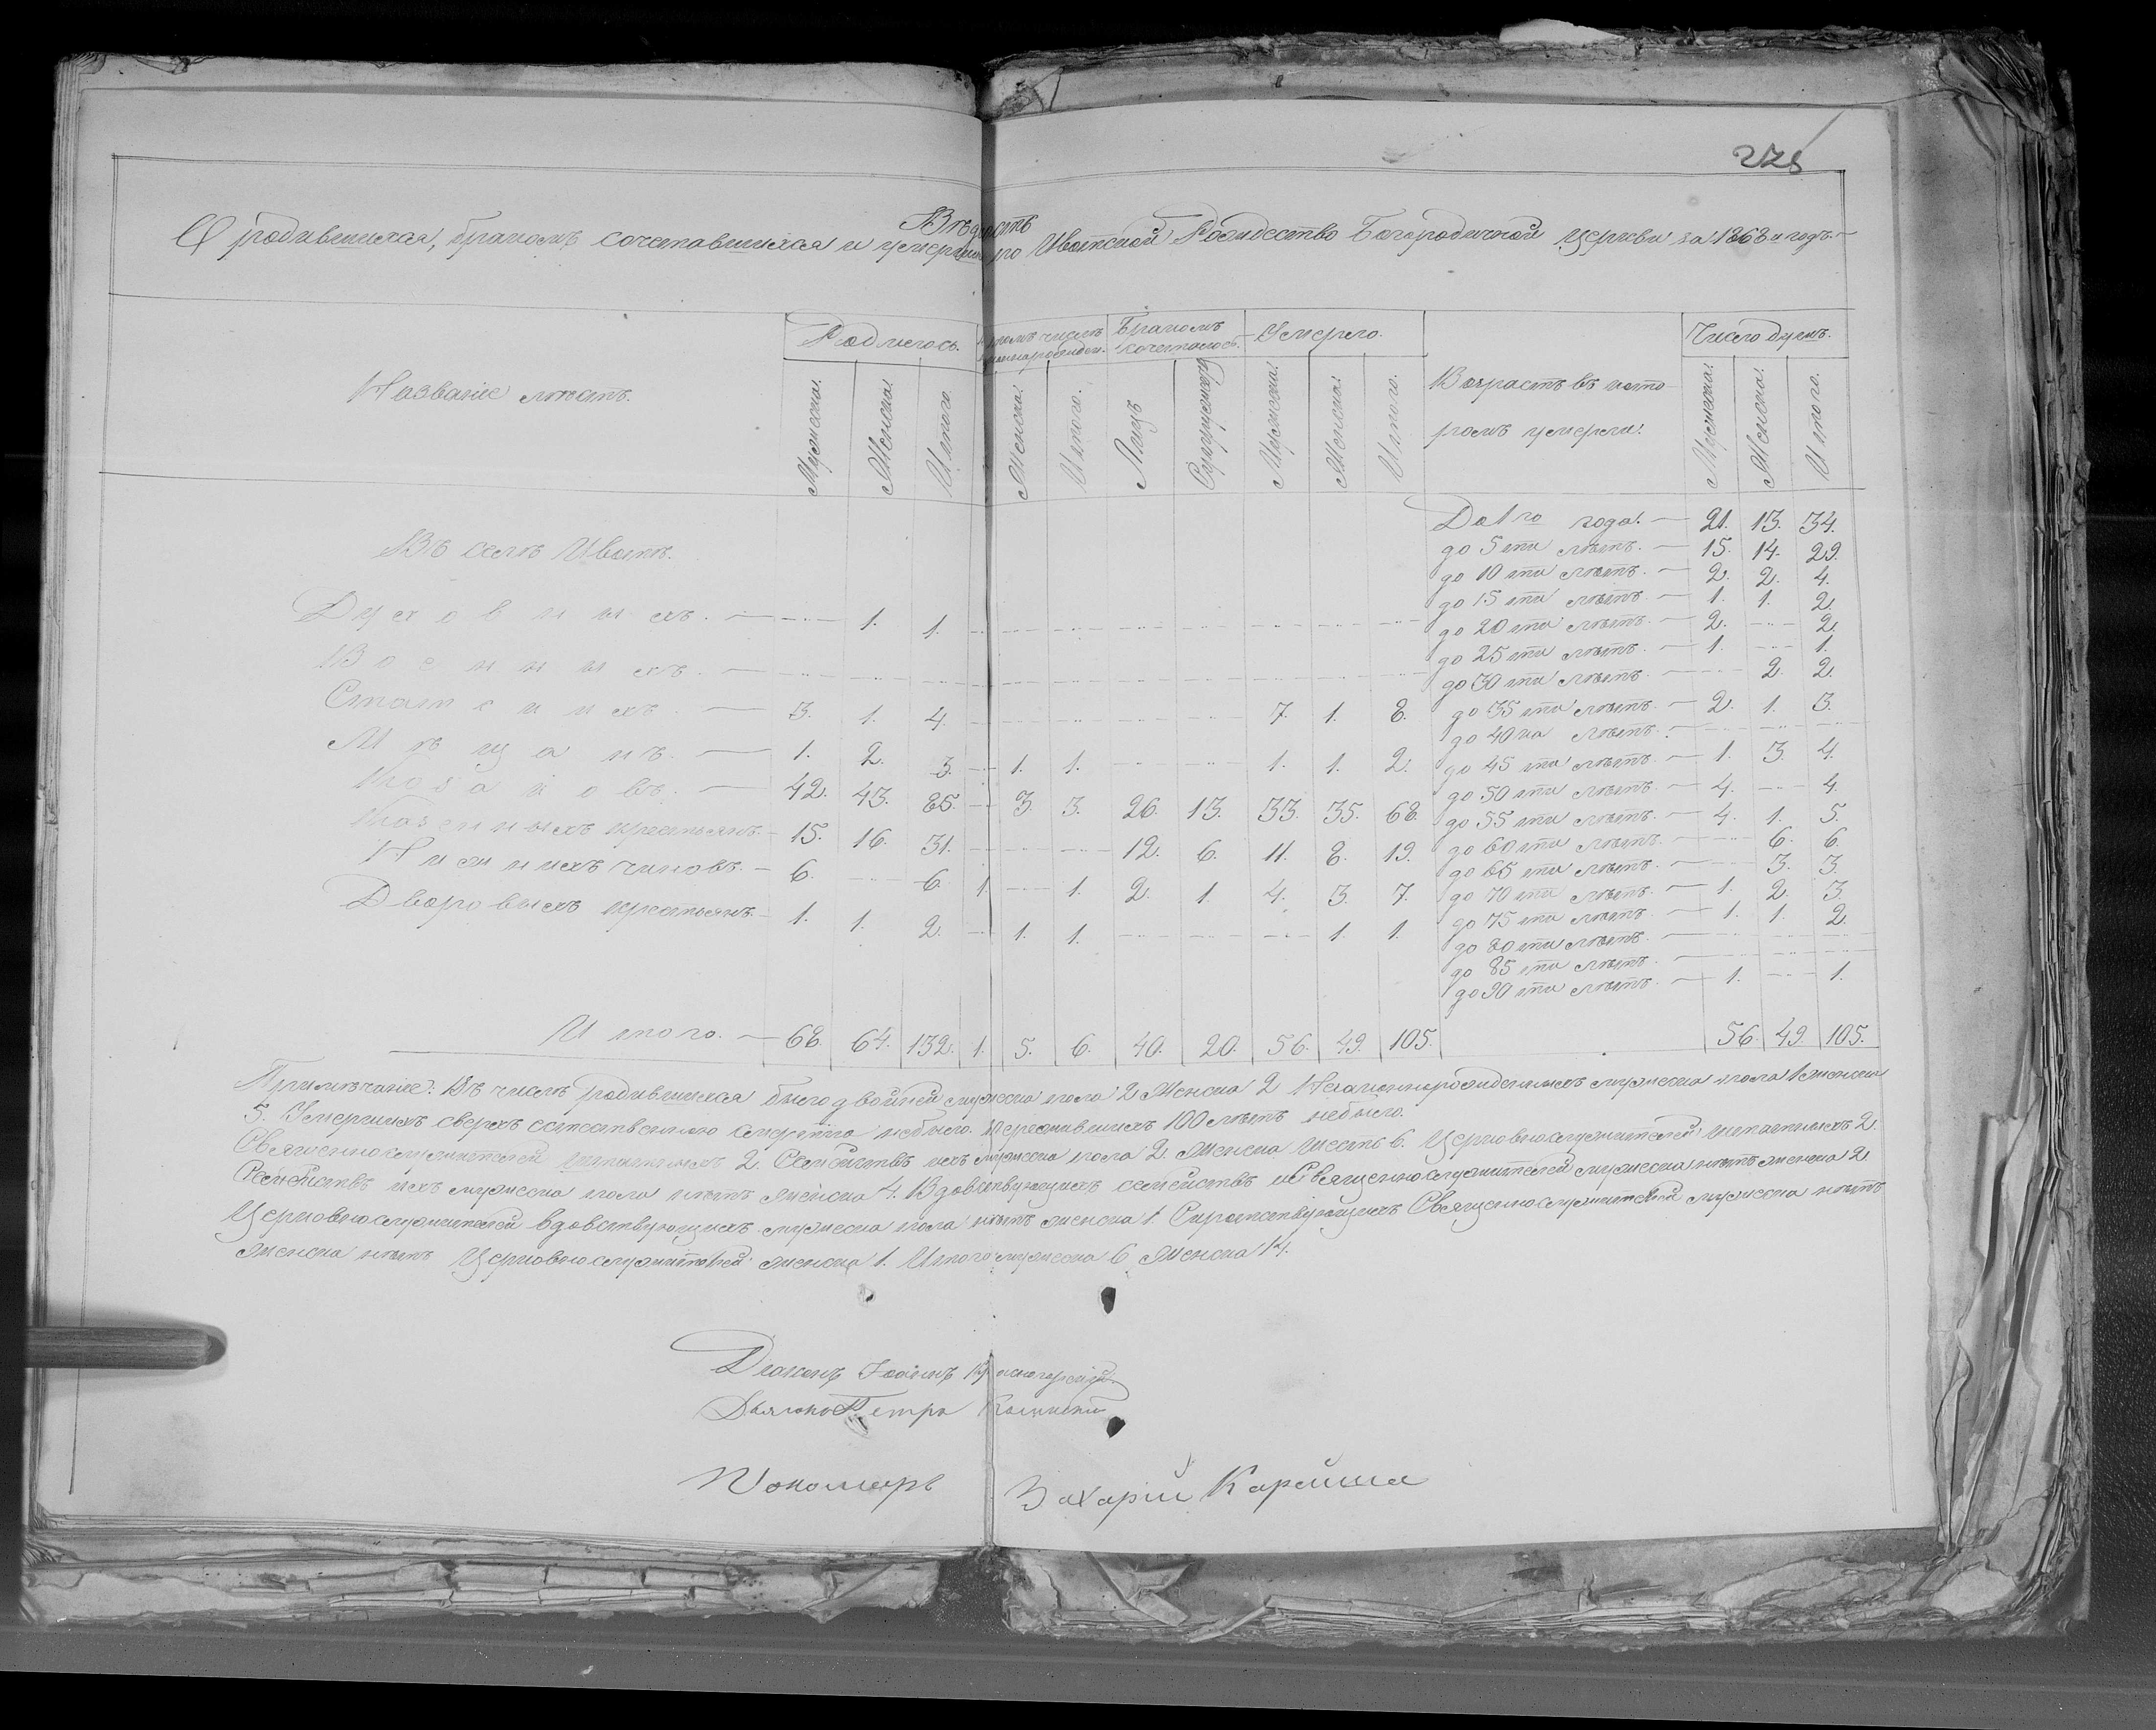 225
Вѣдомость
О родившихся, бракомъ сочетавшихся и умершихъ по Ивотской Рождество Богородичной церкви за 1868 й годъ.
Названіе мѣстъ. Родилось. Бракомъ сочеталось. Умерло. Возрастъ въ кото- Число душъ.
Мужеска. Женска. Итого. Женска. Итого. Лицъ Супружествъ Мужеска. Женска. Итого. ромъ умерли. Мужеска. Женска. Итого.
Въ селѣ Ивотѣ.
Духовныхъ. — 1. 1.
Военныхъ. —
Статскихъ. — 3. 1. 4. 7. 1. 8.
Мѣщанъ. — 1. 2. 3. 1. 1. 1. 1. 2.
Козаковъ. — 42. 43. 85. 3. 3. 26. 13. 33. 35. 68.
Казенныхъ крестьянъ. 15. 16. 31. 12. 6. 11. 8. 19.
Нижнихъ чиновъ. — 6. 6. 1. 1. 2. 1. 4. 3. 7.
Дворовыхъ крестьянъ. 1. 1. 2. 1. 1. 1. 1.
До 1 го года. — 21. 13. 34.
до 5 ти лѣтъ. — 15. 14. 29.
до 10 ти лѣтъ. — 2. 2. 4.
до 15 ти лѣтъ. — 1. 1. 2.
до 20 ти лѣтъ. — 2. 2.
до 25 ти лѣтъ. — 1. 1.
до 30 ти лѣтъ. — 2. 2.
до 35 ти лѣтъ. — 2. 1. 3.
до 40 ка лѣтъ.
до 45 ти лѣтъ. — 1. 3. 4.
до 50 ти лѣтъ. — 4. 4.
до 55 ти лѣтъ. — 4. 1. 5.
до 60 ти лѣтъ. — 6. 6.
до 65 ти лѣтъ. — 3. 3.
до 70 ти лѣтъ. — 1. 2. 3.
до 75 ти лѣтъ. — 1. 1. 2.
до 80 ти лѣтъ. —
до 85 ти лѣтъ. —
до 90 ти лѣтъ. — 1. 1.
Итого. — 68. 64. 132. 1. 5. 6. 40. 20. 56. 49. 105. 56. 49. 105.
Примѣчаніе: Въ числѣ родившихся было двойней мужеска пола 2 женска 2 Незаконнорожденныхъ мужеска пола 1 женска
5. Умершихъ сверхъ естественною смертію небыло. Пережившихъ 100 лѣтъ небыло.
Священнослужителей штатныхъ 2. Семействъ ихъ мужеска пола 2. женска шесть 6. Церковнослужителей штатныхъ 2.
Семействъ ихъ мужеска пола нѣтъ женска 4. Вдовствующихъ семействъ Священнослужителей мужеска нѣтъ женска 2
Церковнослужителей вдовствующихъ мужеска пола нѣтъ женска 1. Сиротствующихъ Священнослужителей мужеска нѣтъ
женска нѣтъ Церковнослужителей женска 1. Итого мужеска 6 женска 14.
Діаконъ Іоаннъ
Дьячокъ Петръ
Пономарь Захарій Карейша